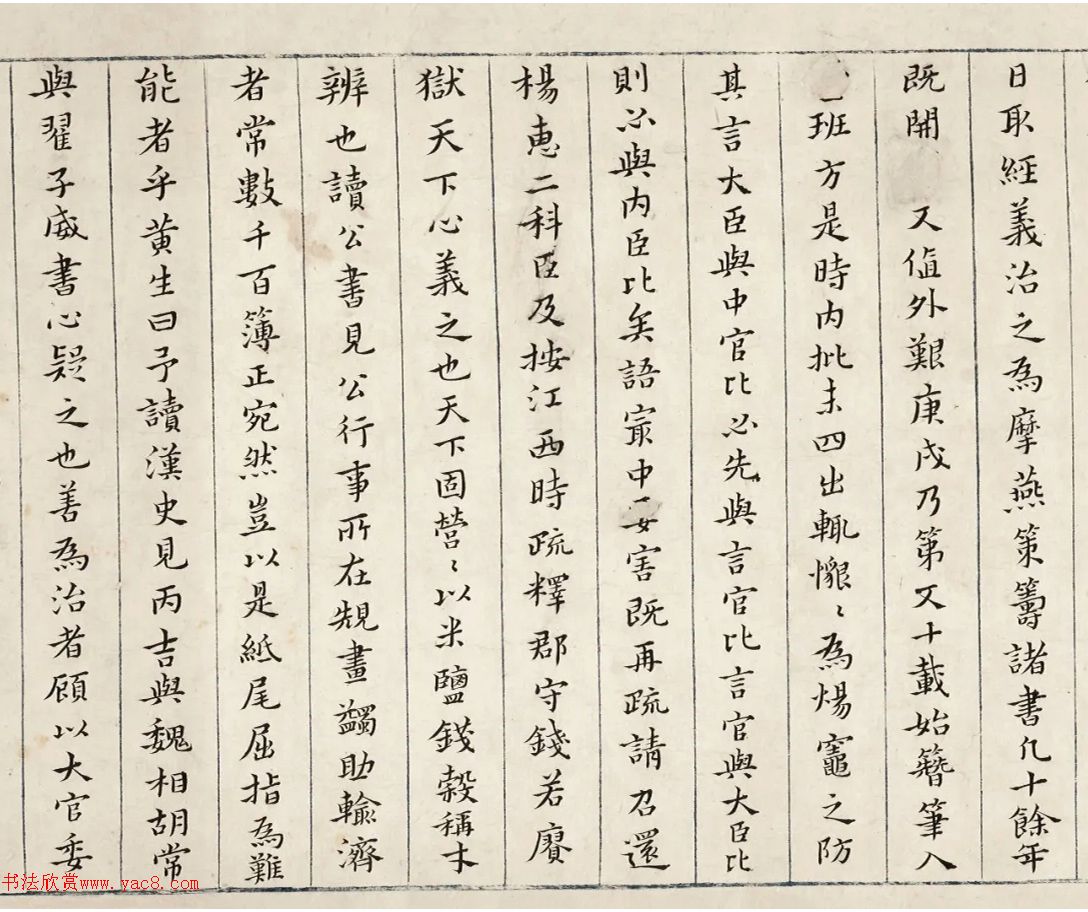 日取經義治之為摩燕策籌諸書凡十餘年
既開 又值外艱庚戌乃第又十載始簪筆入
班方是時内批未四出輒懇〻為煬竈之防
其言大臣與中官比必先與言官比言官與大臣比
則必與内臣比矣語冣中要害既再疏請召還
楊惠二科臣及按江西時疏釋郡守錢若賡
獄天下心義之也天下固營〻以米鹽錢穀稱才
辨也讀公書見公行事所在規畫蠲助輸濟
者常數千百簿正宛然豈以是紙尾屈指為難
能者乎黃生曰予讀漢史見丙吉與魏相胡常
與翟子威書心疑之也善為治者顧以大官委
书法欣赏www.yac8.com